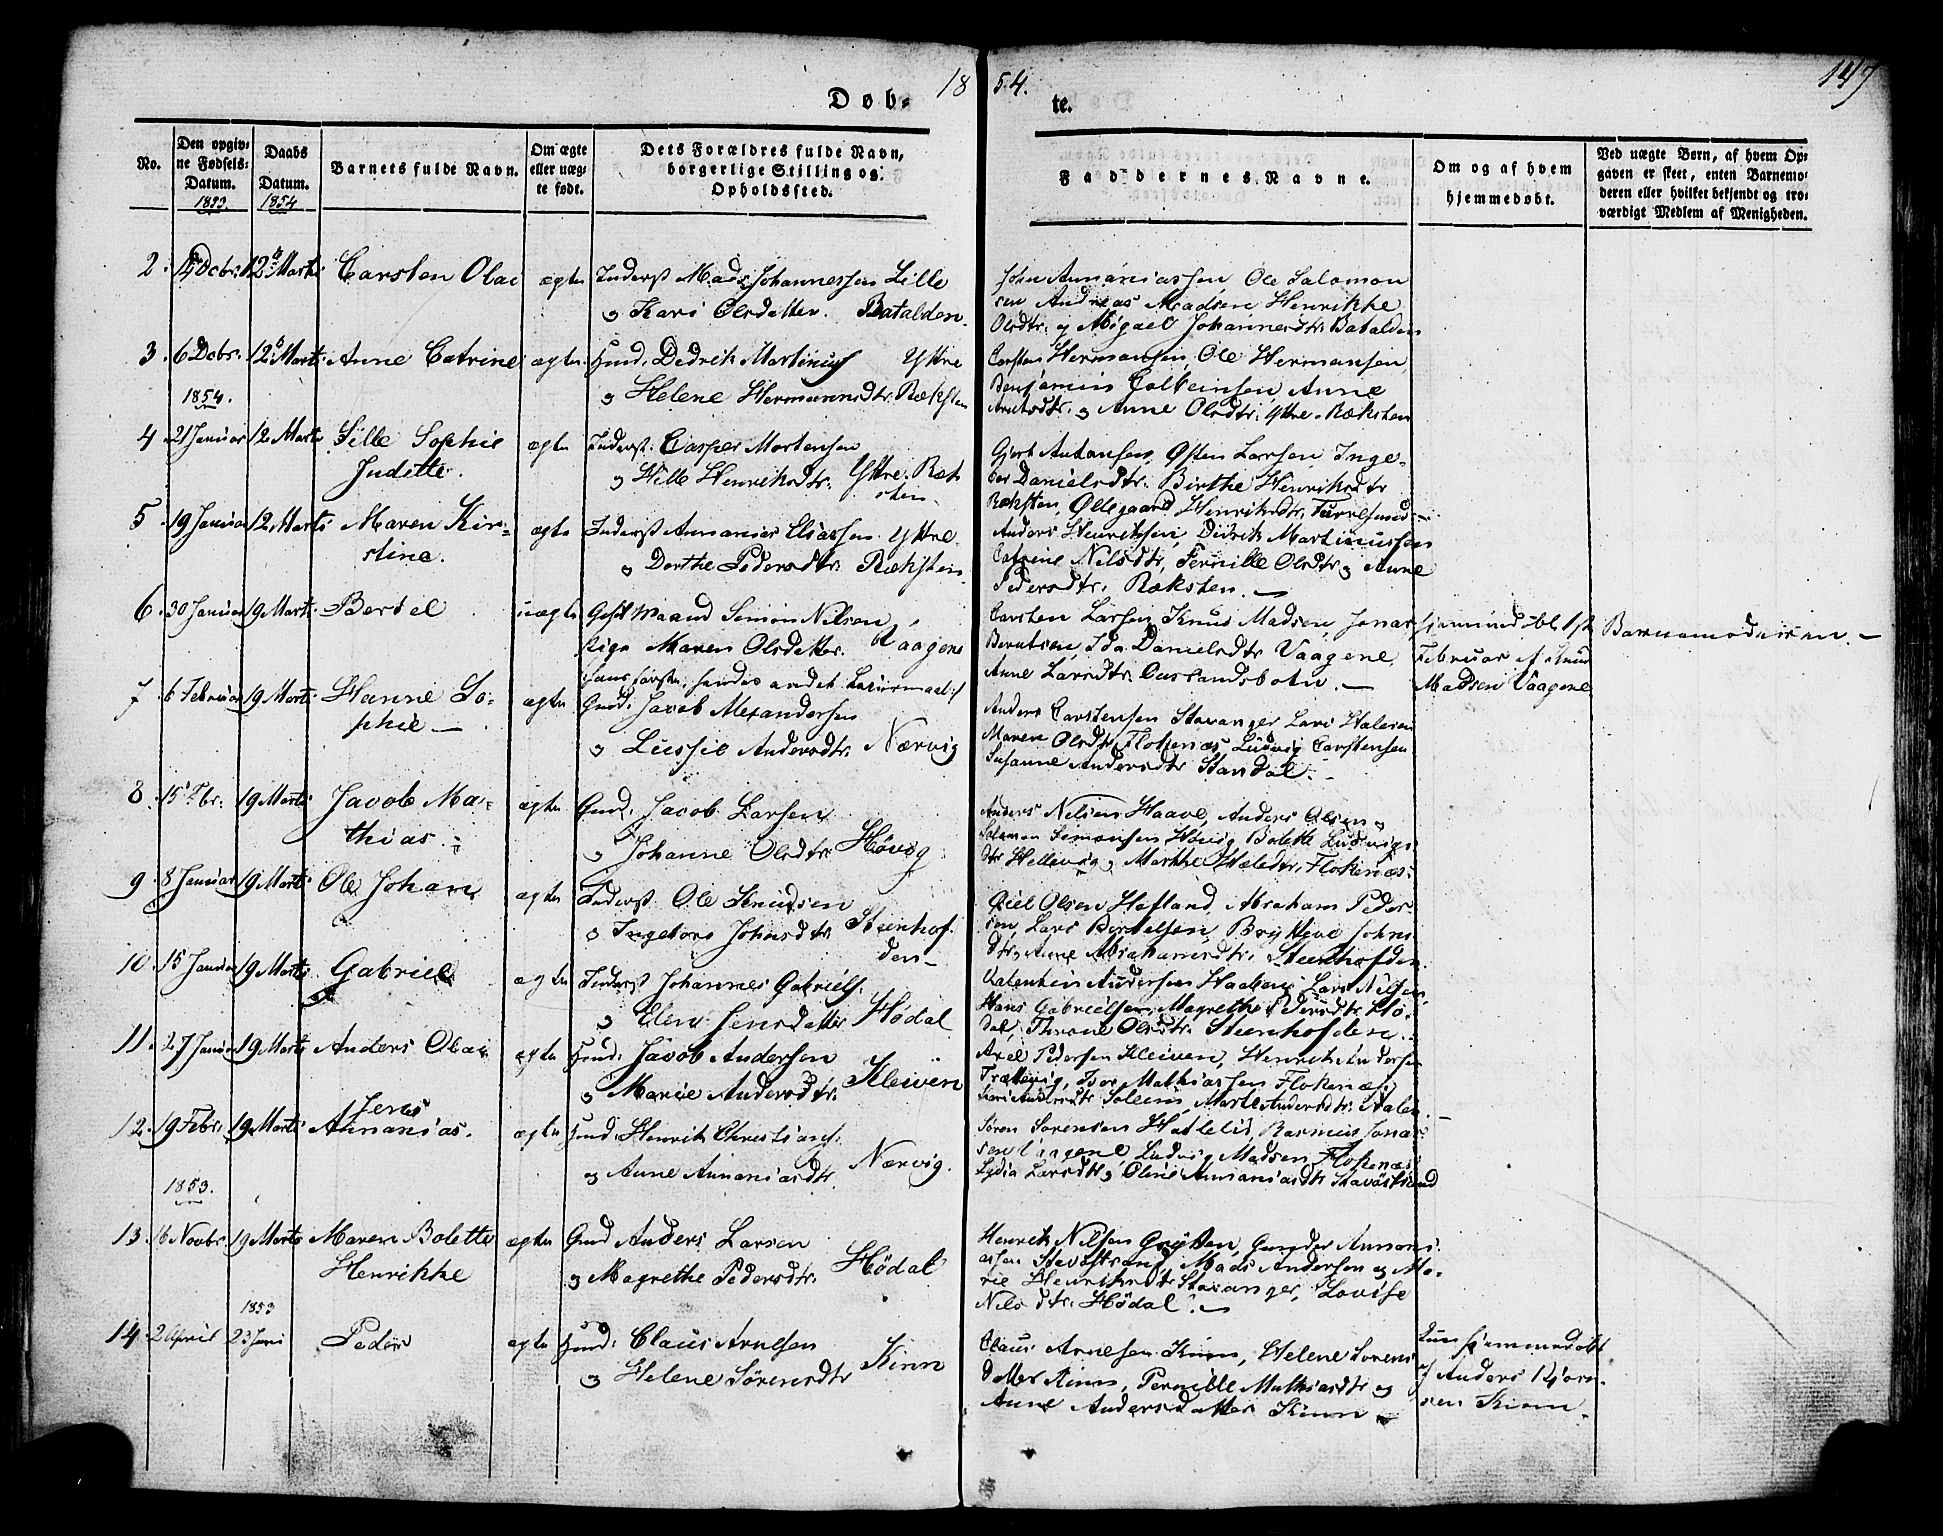 Døb-
18
54.
te.
147
No.
Den opgiv-
ne Fødsels-
Datum.
1853.
Daabs
Datum.
1854
Barnets fulde Navn.
Om ægte
eller uæg-
te født.
Dets Forældres fulde Navn,
borgerlige Stilling og
Opholdssted.
Faddernes Navne.
Om og af hvem
hjemmedøbt.
Ved uægte Børn, af hvem Op-
gaven er skeet, enten Barnemo-
deren eller hvilket bekjendt og tro-
værdigt Medlem af Menigheden.
2. Decbr. 12 Marts Carsten Olai ægte Inderst Mads Johannessen Lille
og Kari Olsdatter. Batalden.
John Annaniassen, Ole Salomon
sen Andreas Madsen Henrikke
Olsdtr. og Migael Johannesdtr. Batalden
3. 6 Decbr. 12 Marts Anne Catrine ægte Gmd. Dedrik Martinus Yttre
og Helene Hermannsdtr. Ræksten
Carsten Hermansen, Ole Hermansen,
Benjamin Anne
Arntsdtr. og Anne Olsdtr. Yttre Ræksten
1854.
4. 21 Januar 12 Marts Sille Sophie
Judette.
ægte Inderst. Casper Mortensen
og Sille Henriksdtr. Yttre Ræk
sten.
Gjert Antonsen, Østen Larsen Inge-
bor Danielsdtr. Birthe Henriksdtr
Ræksten, Øllegaard Henriksdtr.
5. 19 Januar 12 Marts Maren Kir-
stine.
ægte Inderst Annanias Eliassen Yttre
og Dorthe Pedersdtr. Ræksten.
Anders Henriksen, Didrik Martinussen
Catrine Nilsdtr, Pernille Olsdtr og Anne
Pedersdtr. Ræksten.
6. 30 Januar 19 Marts Bertel uægte Simon Nilsen
Pige Maren Olsdatter. Vaagene
hans første, hendes andet Leiermaal
Carsten Larsen, Knud Madsen, Jonas
Berntsen, Ida Danielsdtr Vaagene,
Anne Larsdtr.
hjemmedøbt 1ste
Februar af Knud
Madsen Vaagene
Barnemoderen
7. 6 Februar 19 Marts Hanne So-
phie
ægte Gmd. Jacob Alexandersen
og Lussie Andersdtr. Nærvig
Anders Carstensen Stavanger Lars
Maren Olsdtr Flokenæs, Ludvig Carstensen
Susanne Andersdtr Standal.
8. 15 Fbr. 19 Marts Jacob Ma-
thias.
ægte Gmd. Jacob Larsen
og Johanne Olsdtr. Høvig
Anders Nilsen Haave, Anders Olsen
Salomon Simonsen Høvig Bolette Ludvigs
dtr Hellevig og Marthe Flokenæs.
9. 8 Januar 19 Marts Ole Johan ægte Inderst Ole Knudsen
og Ingebore Johnsdtr. Steenhof-
den
Olsen Hafland, Abraham Peder-
sen, Lars Bertelsen, Johns
dtr, Anne Abrahamsdtr. Steenhofden.
10. 15 Januar 19 Marts Gabriel ægte Inderst Johannes Gabriels.
og Elen Jensdatter Hødal
Valentin Andersen Lars Nilsen,
Hans Gabrielsen, Magrethe Hø-
dal, Olsdtr. Steenhofden.
11. 27 Januar 19 Marts Anders Olai ægte Gmd. Jacob Andersen
og Marie Andersdtr. Kleiven
Axel Pedersen Kleiven, Henrik Andersen
Mathiassen Flokenæs,
Marte Andersdtr.
12. 19 Febr. 19 Marts Jens
Annanias.
ægte Gmd. Henrik Christians.
og Anne Annaniasdtr. Nærvig.
Søren Sørensen Rasmus Jonas-
sen Vaagene, Ludvig Madsen Flokenæs
Lydia Larsdtr og Oline Annaniasdtr
1853.
13. 16 Novbr. 19 Marts Maren Bolette
Henrikke
ægte Gmd Anders Larsen
og Magrethe Pedersdtr. Hødal
Henrik Nilsen Gunder Annani-
assen Mads Andersen og Ma-
rie Henriksdtr Stavanger, Lovise
Nilsdtr. Hødal.
1853
14. 2 April 23 Juni Peder ægte Gmd. Claus Arnesen
og Helene Sørensdtr Kinn
Claus Arnesen Kinn, Helene Sørens
datter Kinn, Pernille Mathiasdtr og
Anne Andersdatter Kinn
hjemmedøbt
af Anders
sen Kinn.